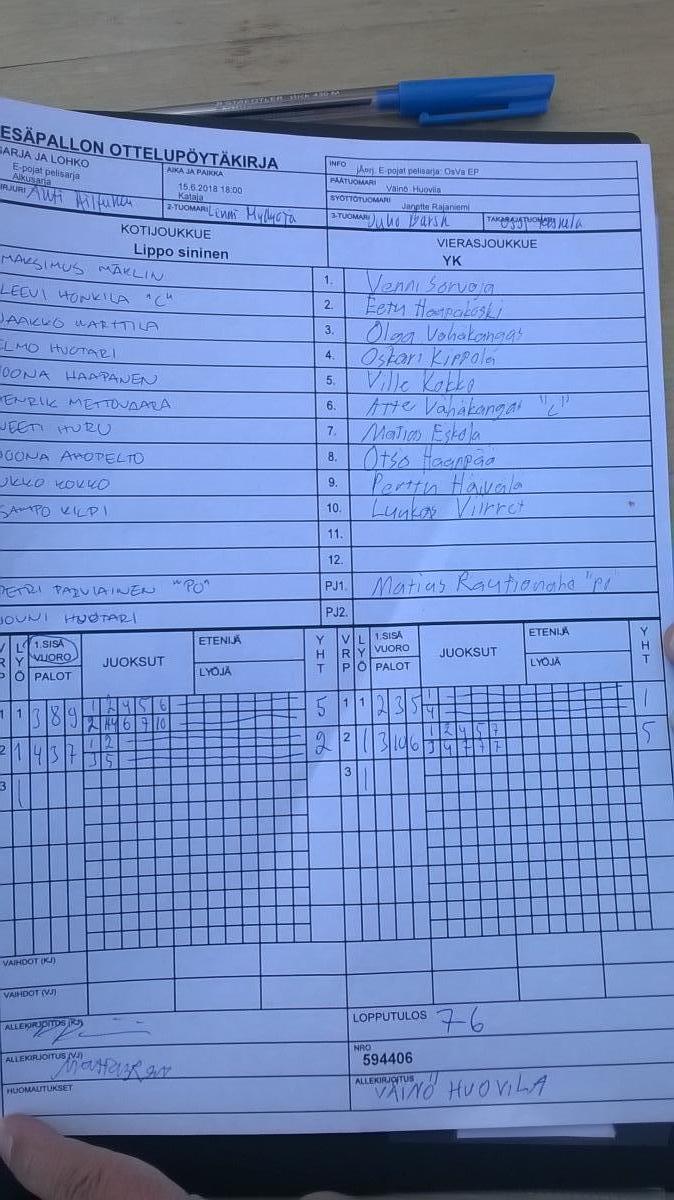 STAEDTLER stick 430 M
ESÄPALLON OTTELUPÖYTÄKIRJA
SARJA JA LOHKO
E-pojat pelisarja
Alkusarja
AIKA JA PAIKKA
15.6.2018 18:00
Kataja
INFO
E-pojat pelisarja: OsVa EP
PÄÄTUOMARI Väinö Huovila
SYÖTTÖTUOMARI Janette Rajaniemi
IRJURI Antti
2-TUOMARI Linni
3-TUOMARI Juho
TAKARAJATUOMARI
KOTIJOUKKUE
Lippo sininen
VIERASJOUKKUE
YK
MAKSIMUS MÄKLIN 1. Venni Sorvoja
LEEVI HONKILA "C" 2. Eetu Haapakoski
JAAKKO WARTTILA 3. Olga Vähäkangas
ELMO HUOTARI 4. Oskari Kippola
JOONA HAAPANEN 5. Ville Kokko
HENRIK METTOVAARA 6. Atte Vähäkangas "C"
VEETI HURU 7. Matias Eskola
JOONA AHOPELTO 8. Otso Haanpää
UKKO KOKKO 9. Perttu
SAMPO KILPI 10. Luukas
11.
12.
PETRI PAIVIAINEN "PO" PJ1. Matias "PJ"
JOUNI HUOTARI PJ2.
V R P LYÖ 1.SISÄ VUORO PALOT JUOKSUT ETENIJÄ LYÖJÄ YHT VRP LYÖ 1.SISÄ VUORO PALOT JUOKSUT ETENIJÄ LYÖJÄ YHT
1 1 3 8 9 1 2 4 5 6 5 1 1 2 3 5 1 1
2 4 6 7 10 4
2 1 4 3 7 1 2 2 2 1 3 10 6 1 2 4 5 7 5
3 5 3 4 7 7 7
3 1 3 1
VAIHDOT (KJ)
VAIHDOT (VJ)
ALLEKIRJOITUS (KJ)
LOPPUTULOS 7-6
ALLEKIRJOITUS (VJ)
NRO
594406
HUOMAUTUKSET
ALLEKIRJOITUS VÄINÖ HUOVILA